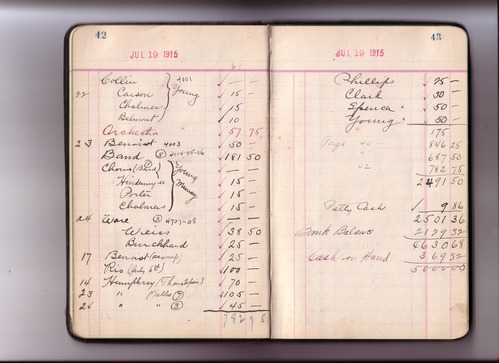 42
JUL 19 1915
Collin 4001 ✓ —
22 Carson Young ✓ 15 —
Chalmer ✓ 15
Belmont ✓ 10
Orchestra ✓ 57 75
23 Benoist 4003 ✓ 50 —
Band ⑧ 4004-05-06 ✓ 181 50
Chorus (Band) Young ✓ — —
✓ 15 —
Porter ✓ 15 —
Chalmus ✓ 15 —
24 Ware ② 4707-08 ✓ — —
Weiss ✓ 38 50
Burckhard ✓ 25 —
17 Benoist ✓ 25 —
Rio (July 6th) ✓ 100 —
14 Humphrey ✓ 70 —
23 " ✓ 105 —
24 " " ③ ✓ 45 —
782 75
43
JUL 19 1915
Phillips ✓ 25 —
Clark ✓ 50 —
Spencer ✓ 50 —
Young ✓ 50 —
175
Page 40 846 25
687 50
42 782 75
2491 50
Petty Cash ✓ 9 86
2501 36
Bank Balance 2129 32
4630 68
Cash on Hand 369 32
5000 00